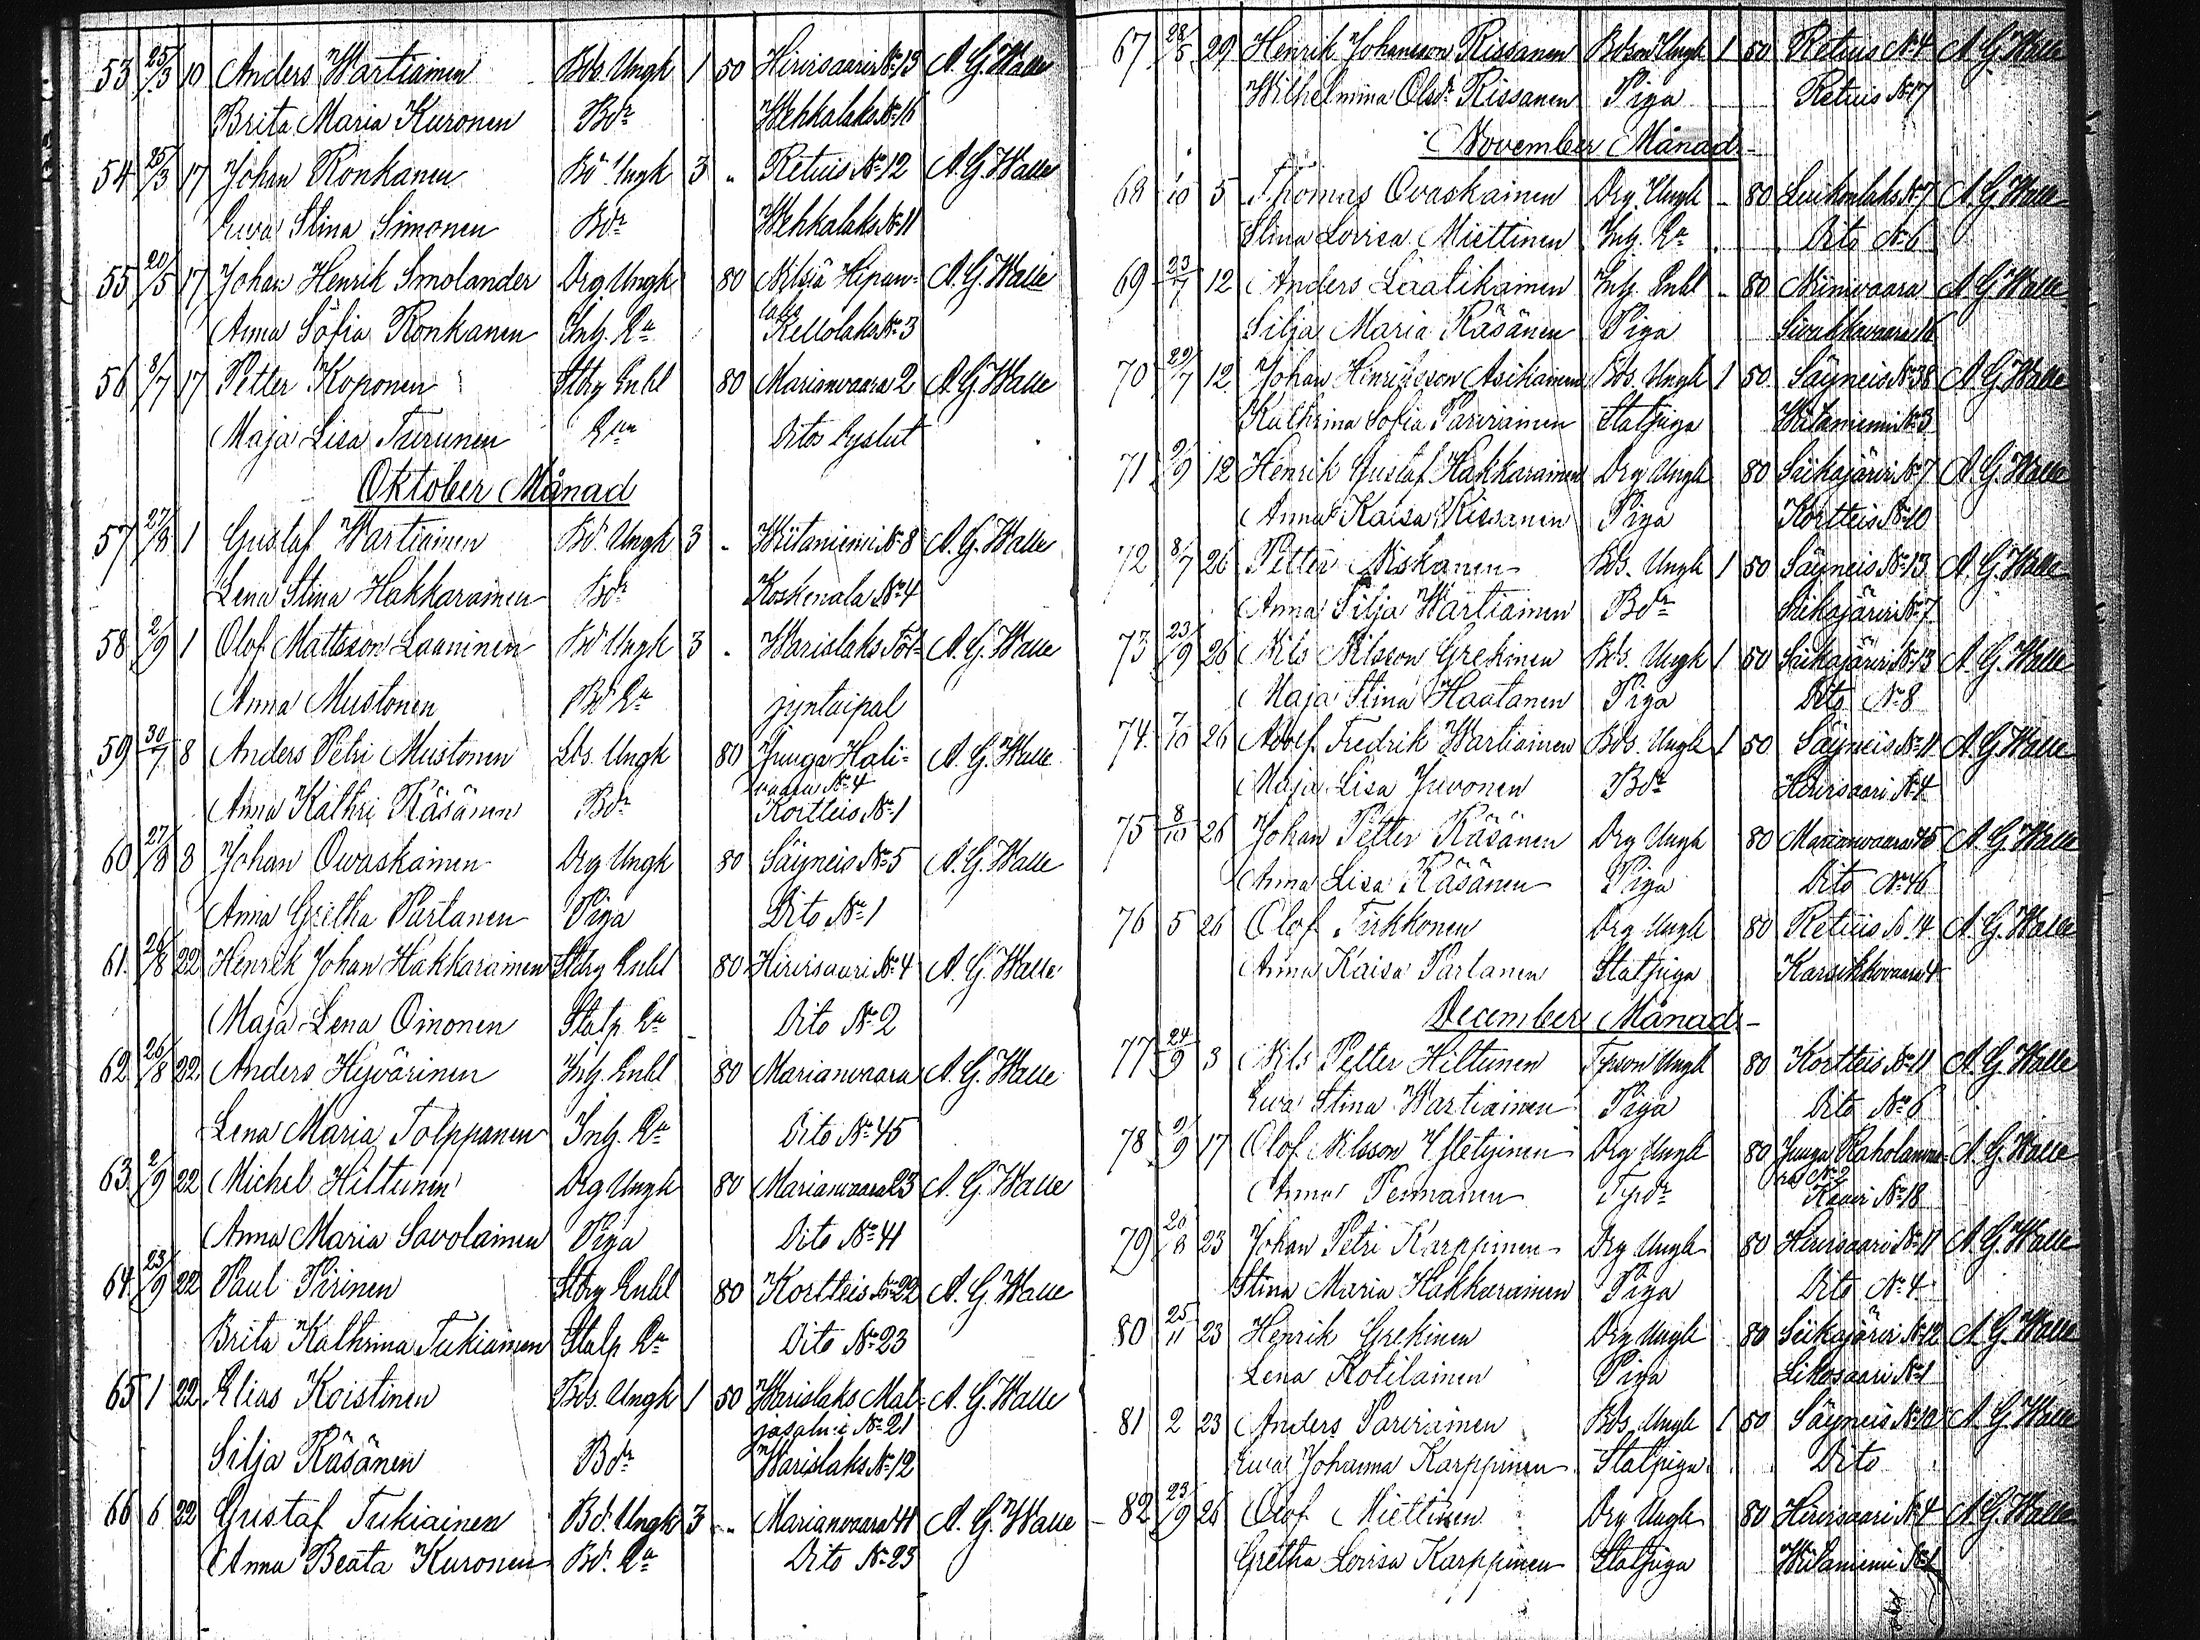 53 25/3 10 Anders Wartiainen Bds. Ungk 1 50 Hirvisaari № 13 A. G. Walle
Brita Maria Kuronen Bdr Wehkalaks № 16
54 25/3 17 Johan Ronkanen Bd. Ungk 3 „ Retuis № 12 A. G. Walle
Ewa Stina Simonen Bdr Wehkalaks № 11
55 20/5 17 Johan Henrik Smolander Drg Ungk 80 Nilsiä A. G. Walle
Anna Sofia Ronkanen Inh. Ea Kellolaks № 3
56 8/7 17 Petter Koponen Stbrg Enkl 80 Marianvaara 2 A. G. Walle
Maja Lisa Turunen Ditos
Oktober Månad
57 27/8 1 Gustaf Wartiainen Bd. Ungk 3 „ Wiitaniemi № 8 A. G. Walle
Lena Stina Hakkarainen Bdr Koskenala № 4
58 2/9 1 Olof Mattsson Laaninen Bd Ungk 3 „ Warislaks A. G. Walle
Anna Mustonen Bd. Ea
59 30/7 8 Anders Petri Mustonen Lbs. Ungk 80 Juuga Hali- A. G. Walle
vaara № 4
Anna Kathri Räsänen Bdr Kortteis № 1
60 27/8 8 Johan Owaskainen Drg Ungk 80 Säyneis № 5 A. G. Walle
Anna Gretha Partanen Piga Dito № 1
61 26/8 22 Henrik Johan Hakkarainen Stbrg Enkl 80 Hirvisaari № 4 A. G. Walle
Maja Lena Oinonen Stalp. Ea Dito № 2
62 26/8 22 Anders Hyvärinen Inh. Enkl 80 Marianvaara A. G. Walle
Lena Maria Tolppanen Inh. Ea Dito № 45
63 2/9 22 Michel Hiltunen Drg Ungk 80 Marianvaara 23 A. G. Walle
Anna Maria Savolainen Piga Dito № 41
64 23/9 22 Paul Pirinen Stbrg Enkl 80 Kortteis № 22 A. G. Walle
Brita Kathrina Tukiainen Stalp Ea Dito № 23
65 1 22 Elias Koistinen Bds. Ungk 1 50 Warislaks Mal- A. G. Walle
jasalmi № 21
Silja Räsänen Bdr Warislaks № 12
66 6 22 Gustaf Tukiainen Bd. Ungk 3 „ Marianvaara 41 A. G. Walle
Anna Beata Kuronen Bd. Ea Dito № 23
67 28/8 29 Henrik Johansson Rissanen Bdson Ungk 1 50 Retuis № 4 A. G. Walle
Wilhelmina Olsdr Rissanen Piga Retuis № 17
November Månad
68 1/10 5 Thomas Ovaskainen Drg Ungk 80 Luikonlaks № 7 A. G. Walle
Stina Lovisa Miettinen Inh. Ea Dito № 6
69 23/7 12 Anders Laatikainen Inh. Enkl 80 Niinivaara A. G. Walle
Silja Maria Räsänen Piga Sivakkavaara 16
70 29/7 12 Johan Hinriksson Asikainen Bds. Ungk 1 50 Säyneis № 38 A. G. Walle
Kathrina Sofia Parviainen Statpiga Witaniemi № 3
71 9/9 12 Henrik Gustaf Hakkarainen Drg Ungk 80 Siikajärvi № 7 A. G. Walle
Anna Kaisa Rissanen Piga Kortteis № 10
72 8/7 26 Petter Niskanen Bds. Ungk 1 50 Säyneis № 13 A. G. Walle
Anna Silja Wartiainen Bdr Siikajärvi № 7
73 23/9 26 Nils Nilsson Grekinen Bds. Ungk 1 50 Siikajärvi № 13 A. G. Walle
Maja Stina Haatanen Piga Dito № 8
74 7/10 26 Adolf Fredrik Wartiainen Bds. Ungk 1 50 Säyneis № 11 A. G. Walle
Maja Lisa Juvonen Bdr Hirvisaari № 4
75 8/10 26 Johan Petter Räsänen Drg Ungk 80 Marianvaara 45 A. G. Walle
Anna Lisa Räsänen Piga Dito № 46
76 5 26 Olof Tirkkonen Drg Ungk 80 Retuis № 14 A. G. Walle
Anna Kaisa Partanen Statpiga Karsikkovaara 4
December Månad
77 24/9 3 Nils Petter Hiltunen Tpson Ungk 80 Kortteis № 11 A. G. Walle
Ewa Stina Wartiainen Piga Dito № 6
78 9/9 17 Olof Nilsson Drg Ungk 80 Juuga A. G. Walle
Anna Pennanen Tpdr № 18
79 20/8 23 Johan Petri Karppinen Drg Ungk 80 Hirvisaari № 11 A. G. Walle
Stina Maria Hakkarainen Piga Dito № 4
80 25/11 23 Henrik Grekinen Drg Ungk 80 Siikajärvi № 12 A. G. Walle
Lena Kotilainen Piga Likosaari № 1
81 2 23 Anders Parviainen Bds. Ungk 1 50 Säyneis № 10 A. G. Walle
Ewa Johanna Karppinen Statpiga Dito
82 23/9 26 Olof Miettinen Drg Ungk 80 Hirvisaari № 4 A. G. Walle
Gretha Lovisa Karppinen Statpiga Witaniemi